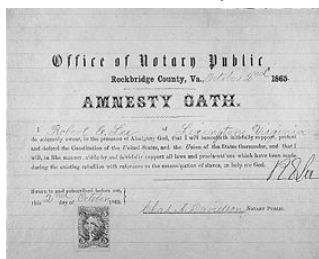 Office of Notary Public
Rockbridge County, Va., October 2nd 1865
AMNESTY OATH.
I Robert E. Lee of Lexington, Virginia
do solemnly swear, in the presence of Almighty God, that I will henceforth faithfully support, protect
and defend the Constitution of the United States, and the Union of the States thereunder, and that I
will, in like manner, abide by and faithfully support all laws and proclamations which have been made
during the existing rebellion with reference to the emancipation of slaves, so help me God.
R E Lee
Sworn to and subscribed before me,
this 2nd day of October 1865.
Chas. A. Davidson NOTARY PUBLIC.